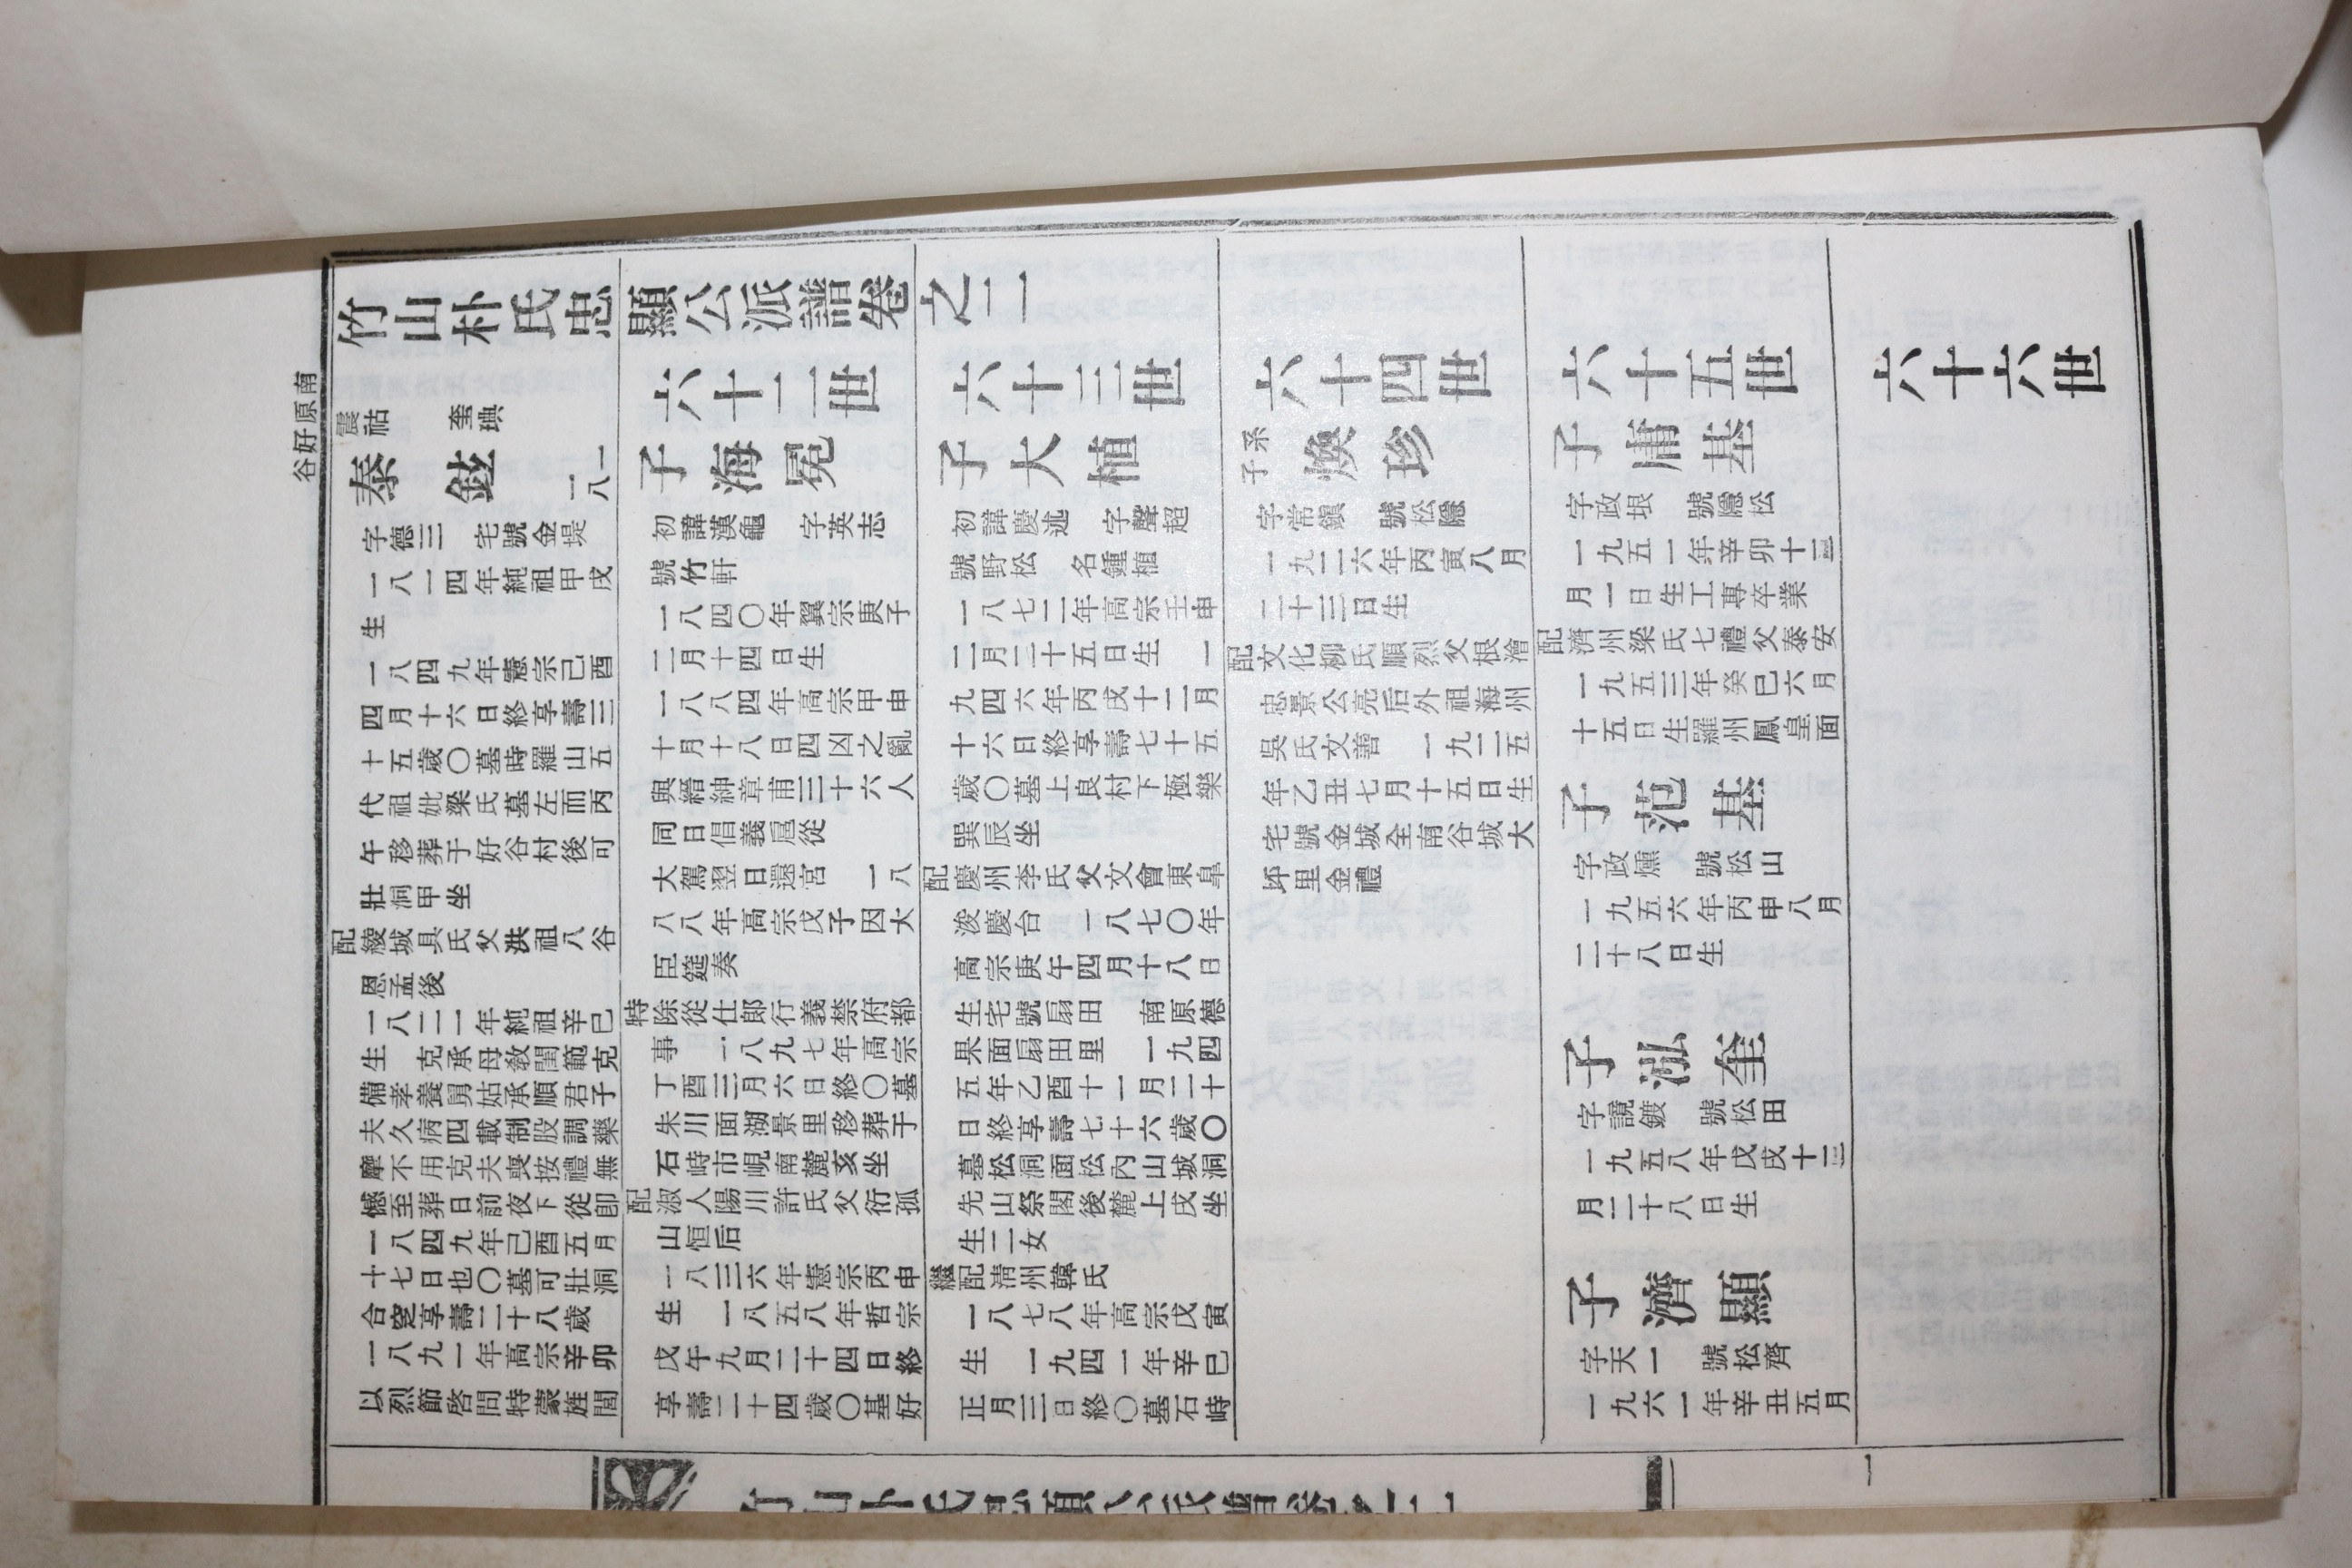 南原好谷
竹山朴氏忠顯公派譜卷之二
震祜　奎琠
泰鉉 一八一
字德三　宅號金堤
一八一四年純祖甲戌
生
一八四九年憲宗己酉
四月十六日終享壽三
十五歲〇墓時羅山五
代祖妣梁氏墓左而丙
午移葬于好谷村後可
壯洞甲坐
配綾城具氏父洪祖八谷
恩孟後
一八二一年純祖辛巳
生　克承母敎閨範克
備孝養舅姑承順君子
夫久病四載制股調藥
摩不用克夫喪按禮無
憾至葬日前夜下從卽
一八四九年己酉五月
十七日也〇墓可壯洞
合窆享壽二十八歲
一八九一年高宗辛卯
以烈節啓問特蒙旌閭
六十二世
子海冕
初諱漢龜　字英志
號竹軒
一八四〇年翼宗庚子
二月十四日生
一八八四年高宗甲申
十月十八日四凶之亂
與縉紳章甫三十六人
同日倡義扈從
大駕翌日還宮　一八
八八年高宗戊子因大
臣筵奏
特除從仕郎行義禁府都
事　一八九七年高宗
丁酉三月六日終〇墓
朱川面湖景里移葬于
石峙市峴南麓亥坐
配淑人陽川許氏父衍孤
山恒后
一八三六年憲宗丙申
生　一八五八年哲宗
戊午九月二十四日終
享壽二十四歲〇基好
六十三世
子大植
初諱慶述　字聲超
號野松　名鍾植
一八七二年高宗壬申
二月二十五日生　一
九四六年丙戌十二月
十六日終享壽七十五
歲〇墓上良村下極樂
巽辰坐
配慶州李氏父文會東皐
浚慶台　一八七〇年
高宗庚午四月十八日
生宅號扇田　南原德
果面扇田里　一九四
五年乙酉十一月二十
日終享壽七十六歲〇
墓松洞面松內山城洞
先山祭閣後麓上戌坐
生二女
繼配清州韓氏
一八七八年高宗戊寅
生　一九四一年辛巳
正月三日終〇墓石峙
六十四世
系子煥珍
字常鎭　號松隱
一九二六年丙寅八月
二十三日生
配文化柳氏順烈父根澮
忠景公亮后外祖海州
吳氏文善　一九二五
年乙丑七月十五日生
宅號金城全南谷城大
坪里金禮
六十五世
子庸基
字政垠　號隱松
一九五一年辛卯十二
月一日生工專卒業
配濟州梁氏七禮父泰安
一九五三年癸巳六月
十五日生羅州鳳皇面
子范基
字政燻　號松山
一九五六年丙申八月
二十八日生
子泓奎
字讜鍍　號松田
一九五八年戊戌十三
月二十八日生
子濟顯
字天一　號松齊
一九六一年辛丑五月
六十六世
一